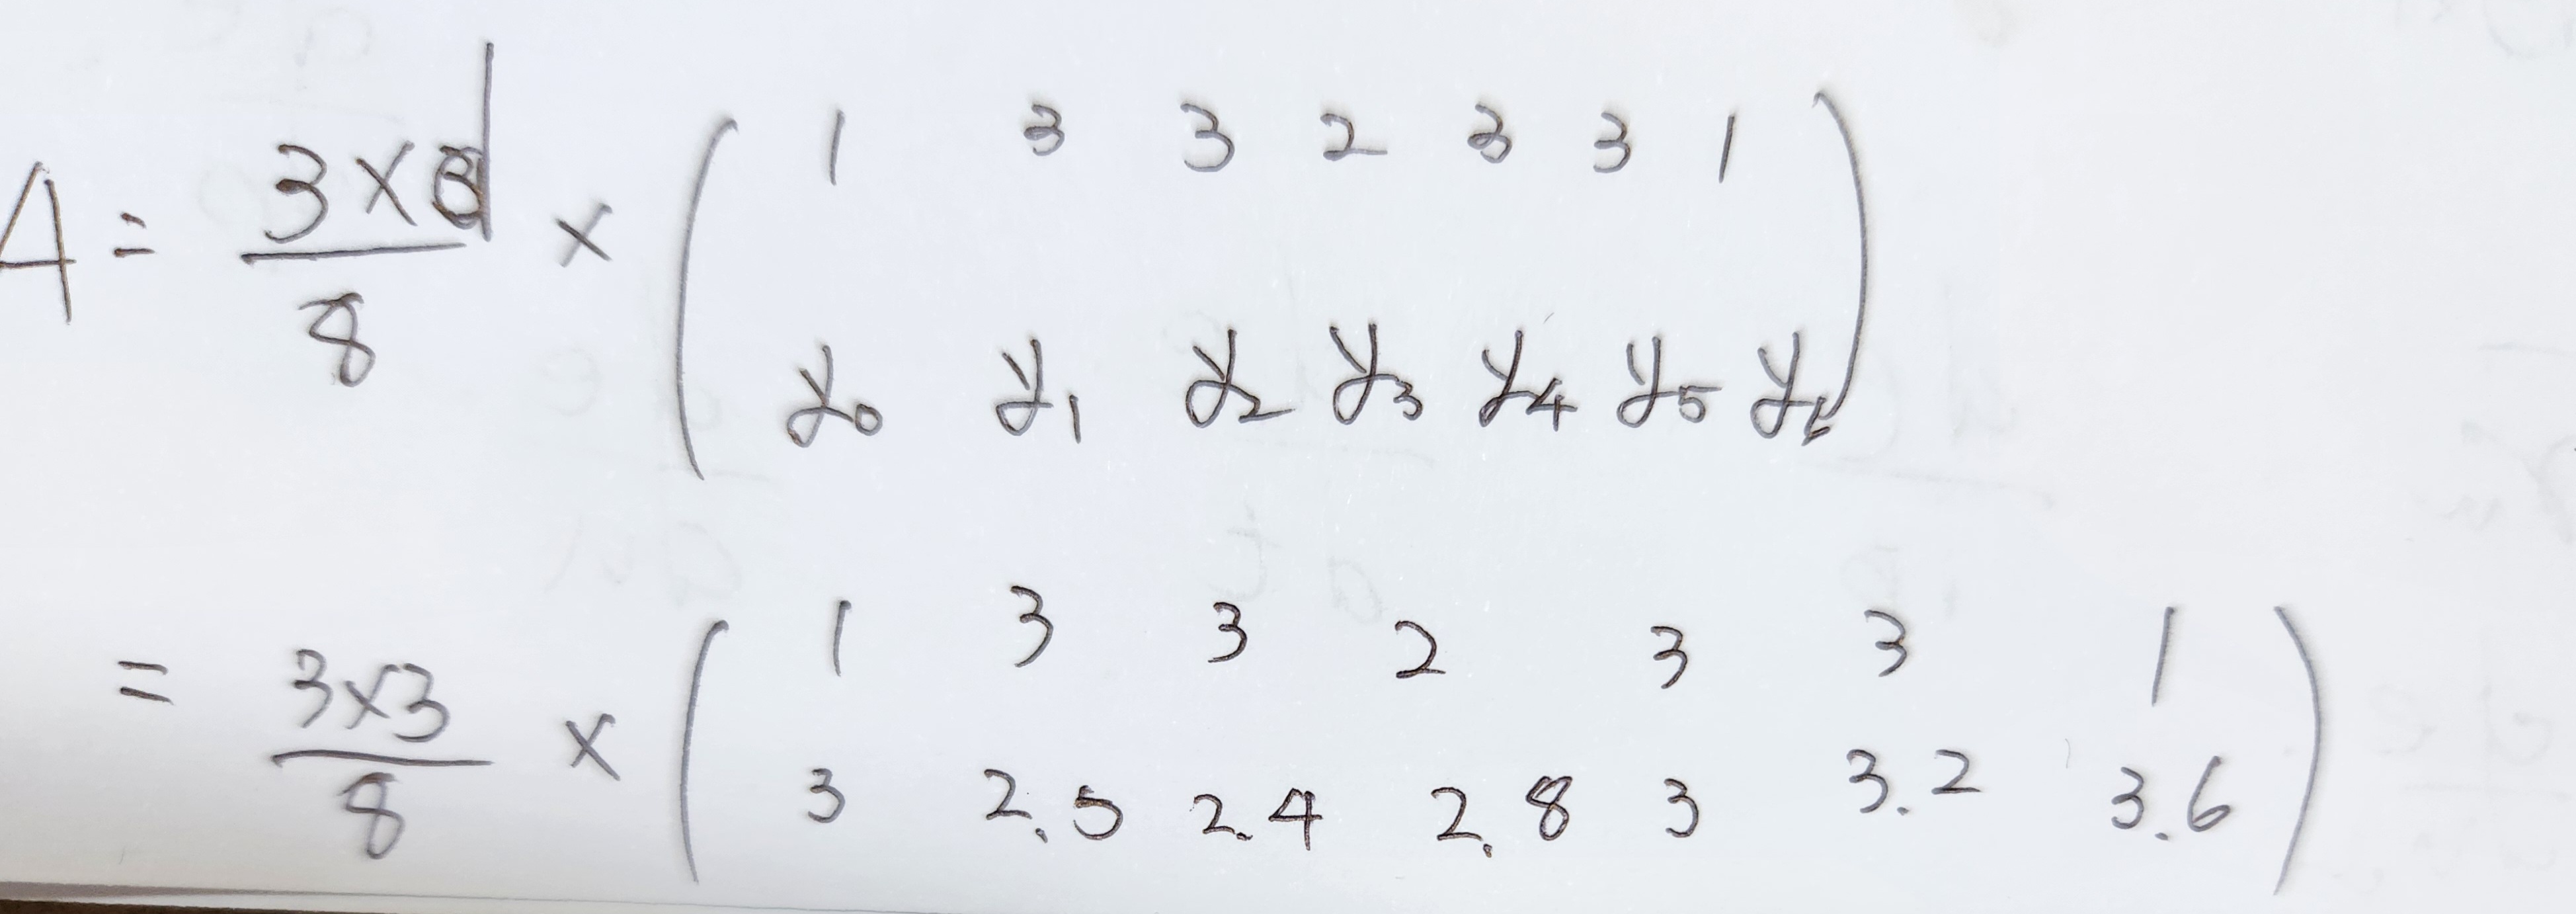 A = 3×d/8 × ( 1 3 3 2 3 3 1
y₀ y₁ y₂ y₃ y₄ y₅ y₆ )
= 3×3/8 × ( 1 3 3 2 3 3 1
3 2.5 2.4 2.8 3 3.2 3.6 )